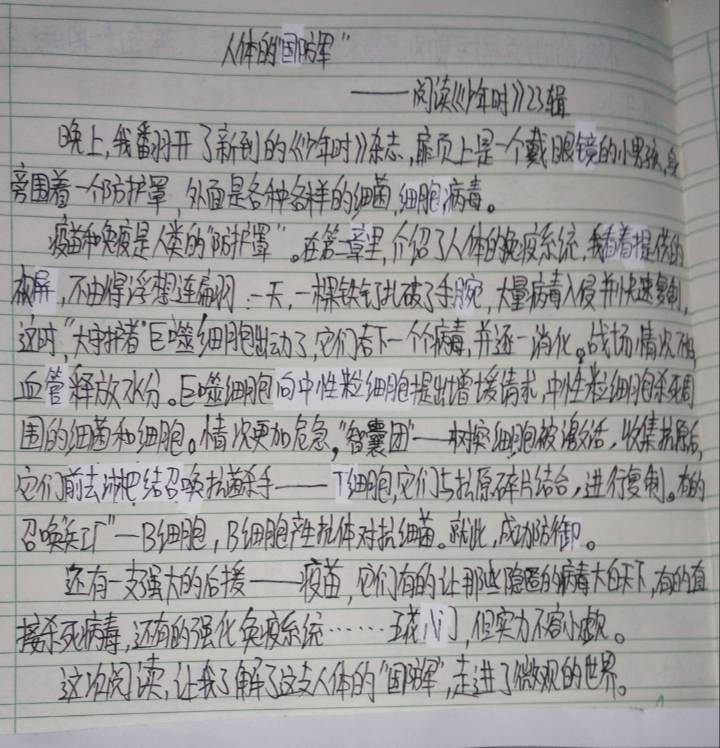 人体的“国防军”
——阅读《少年时》23辑
晚上,我翻开了新到的《少年时》杂志,扉页上是一个戴眼镜的小男孩,身
旁围着一个防护罩,外面是各种各样的细菌,细胞,病毒。
疫苗和免疫是人类的“防护罩”。在第一章里,介绍了人体的免疫系统,我看着提供的
不由得浮想连翩:一天,一棵铁钉扎破了手腕,大量病毒入侵并快速复制,
这时,“大守护者”巨噬细胞出动了,它们吞下一个个病毒,并逐一消化。战场情况不
血管释放水分。巨噬细胞向中性粒细胞提出增援请求,中性粒细胞杀死周
围的细菌和细胞。情况更加危急,“智囊团”——树突细胞被激活,收集抗原后,
它们前去淋巴结召唤抗菌杀手——T细胞,它们与抗原碎片结合,进行复制。有的
召唤“兵工厂”—B细胞,B细胞产生抗体对抗细菌。就此,成功防御。
还有一支强大的后援——疫苗,它们有的让那些隐匿的病毒大白天下,有的直
接杀死病毒,还有的强化免疫系统……五花八门,但实力不容小觑。
这次阅读,让我了解了这支人体的“国防军”,走进了微观的世界。